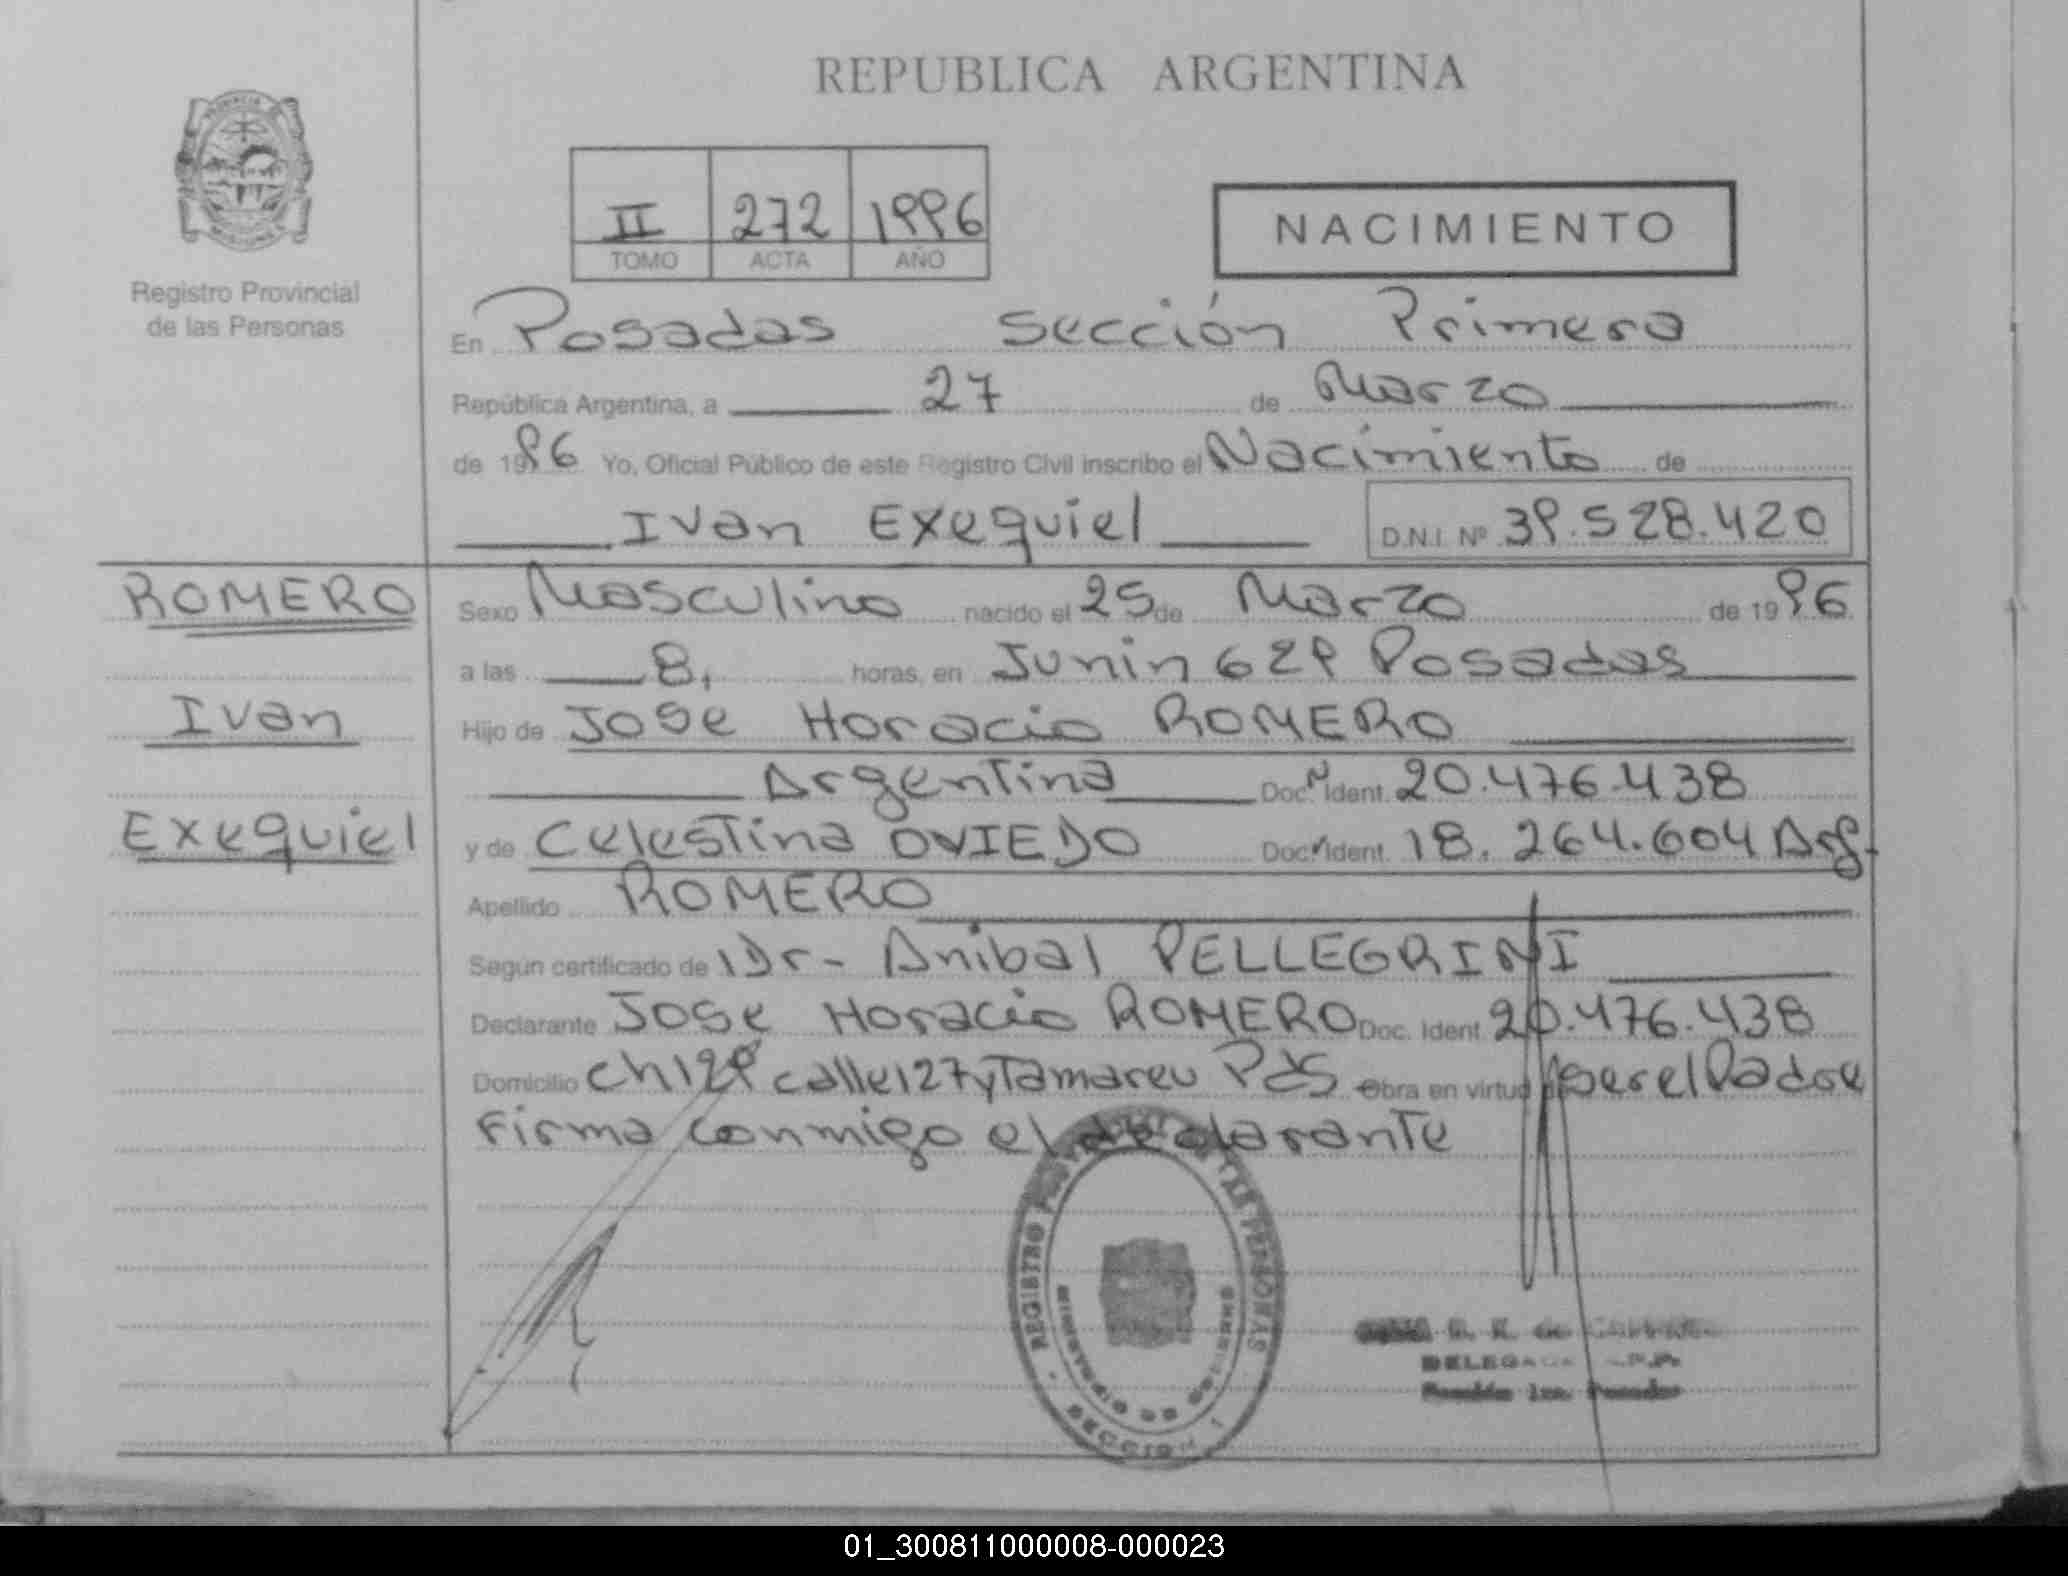 REPUBLICA ARGENTINA
II 272 1996
TOMO ACTA AÑO
NACIMIENTO
Registro Provincial
de las Personas
En Posadas Sección Primera
República Argentina, a 27 de Marzo
de 1996 Yo, Oficial Público de este Registro Civil inscribo el Nacimiento de
Ivan Exequiel D.N.I. Nº 39.528.420
ROMERO
Ivan
Exequiel
Sexo Masculino nacido el 25 de Marzo de 1996
a las 8, horas, en Junin 629 Posadas
Hijo de Jose Horacio ROMERO
Argentina Doc. Ident. 20.476.438
y de Celestina OVIEDO Doc. Ident. 18.264.604 Arg.
Apellido ROMERO
Según certificado de Dr- Anibal PELLEGRINI
Declarante Jose Horacio ROMERO Doc. Ident. 20.476.438
Domicilio Ch129 calle 127 y Tamareu Pds Obra en virtud de ser el Padre
Firma conmigo el declarante
REGISTRO DE LAS PERSONAS
MINISTERIO DE GOBIERNO
SECCION 1
DELEGADA
Sección 1ra. Posadas
01_300811000008-000023